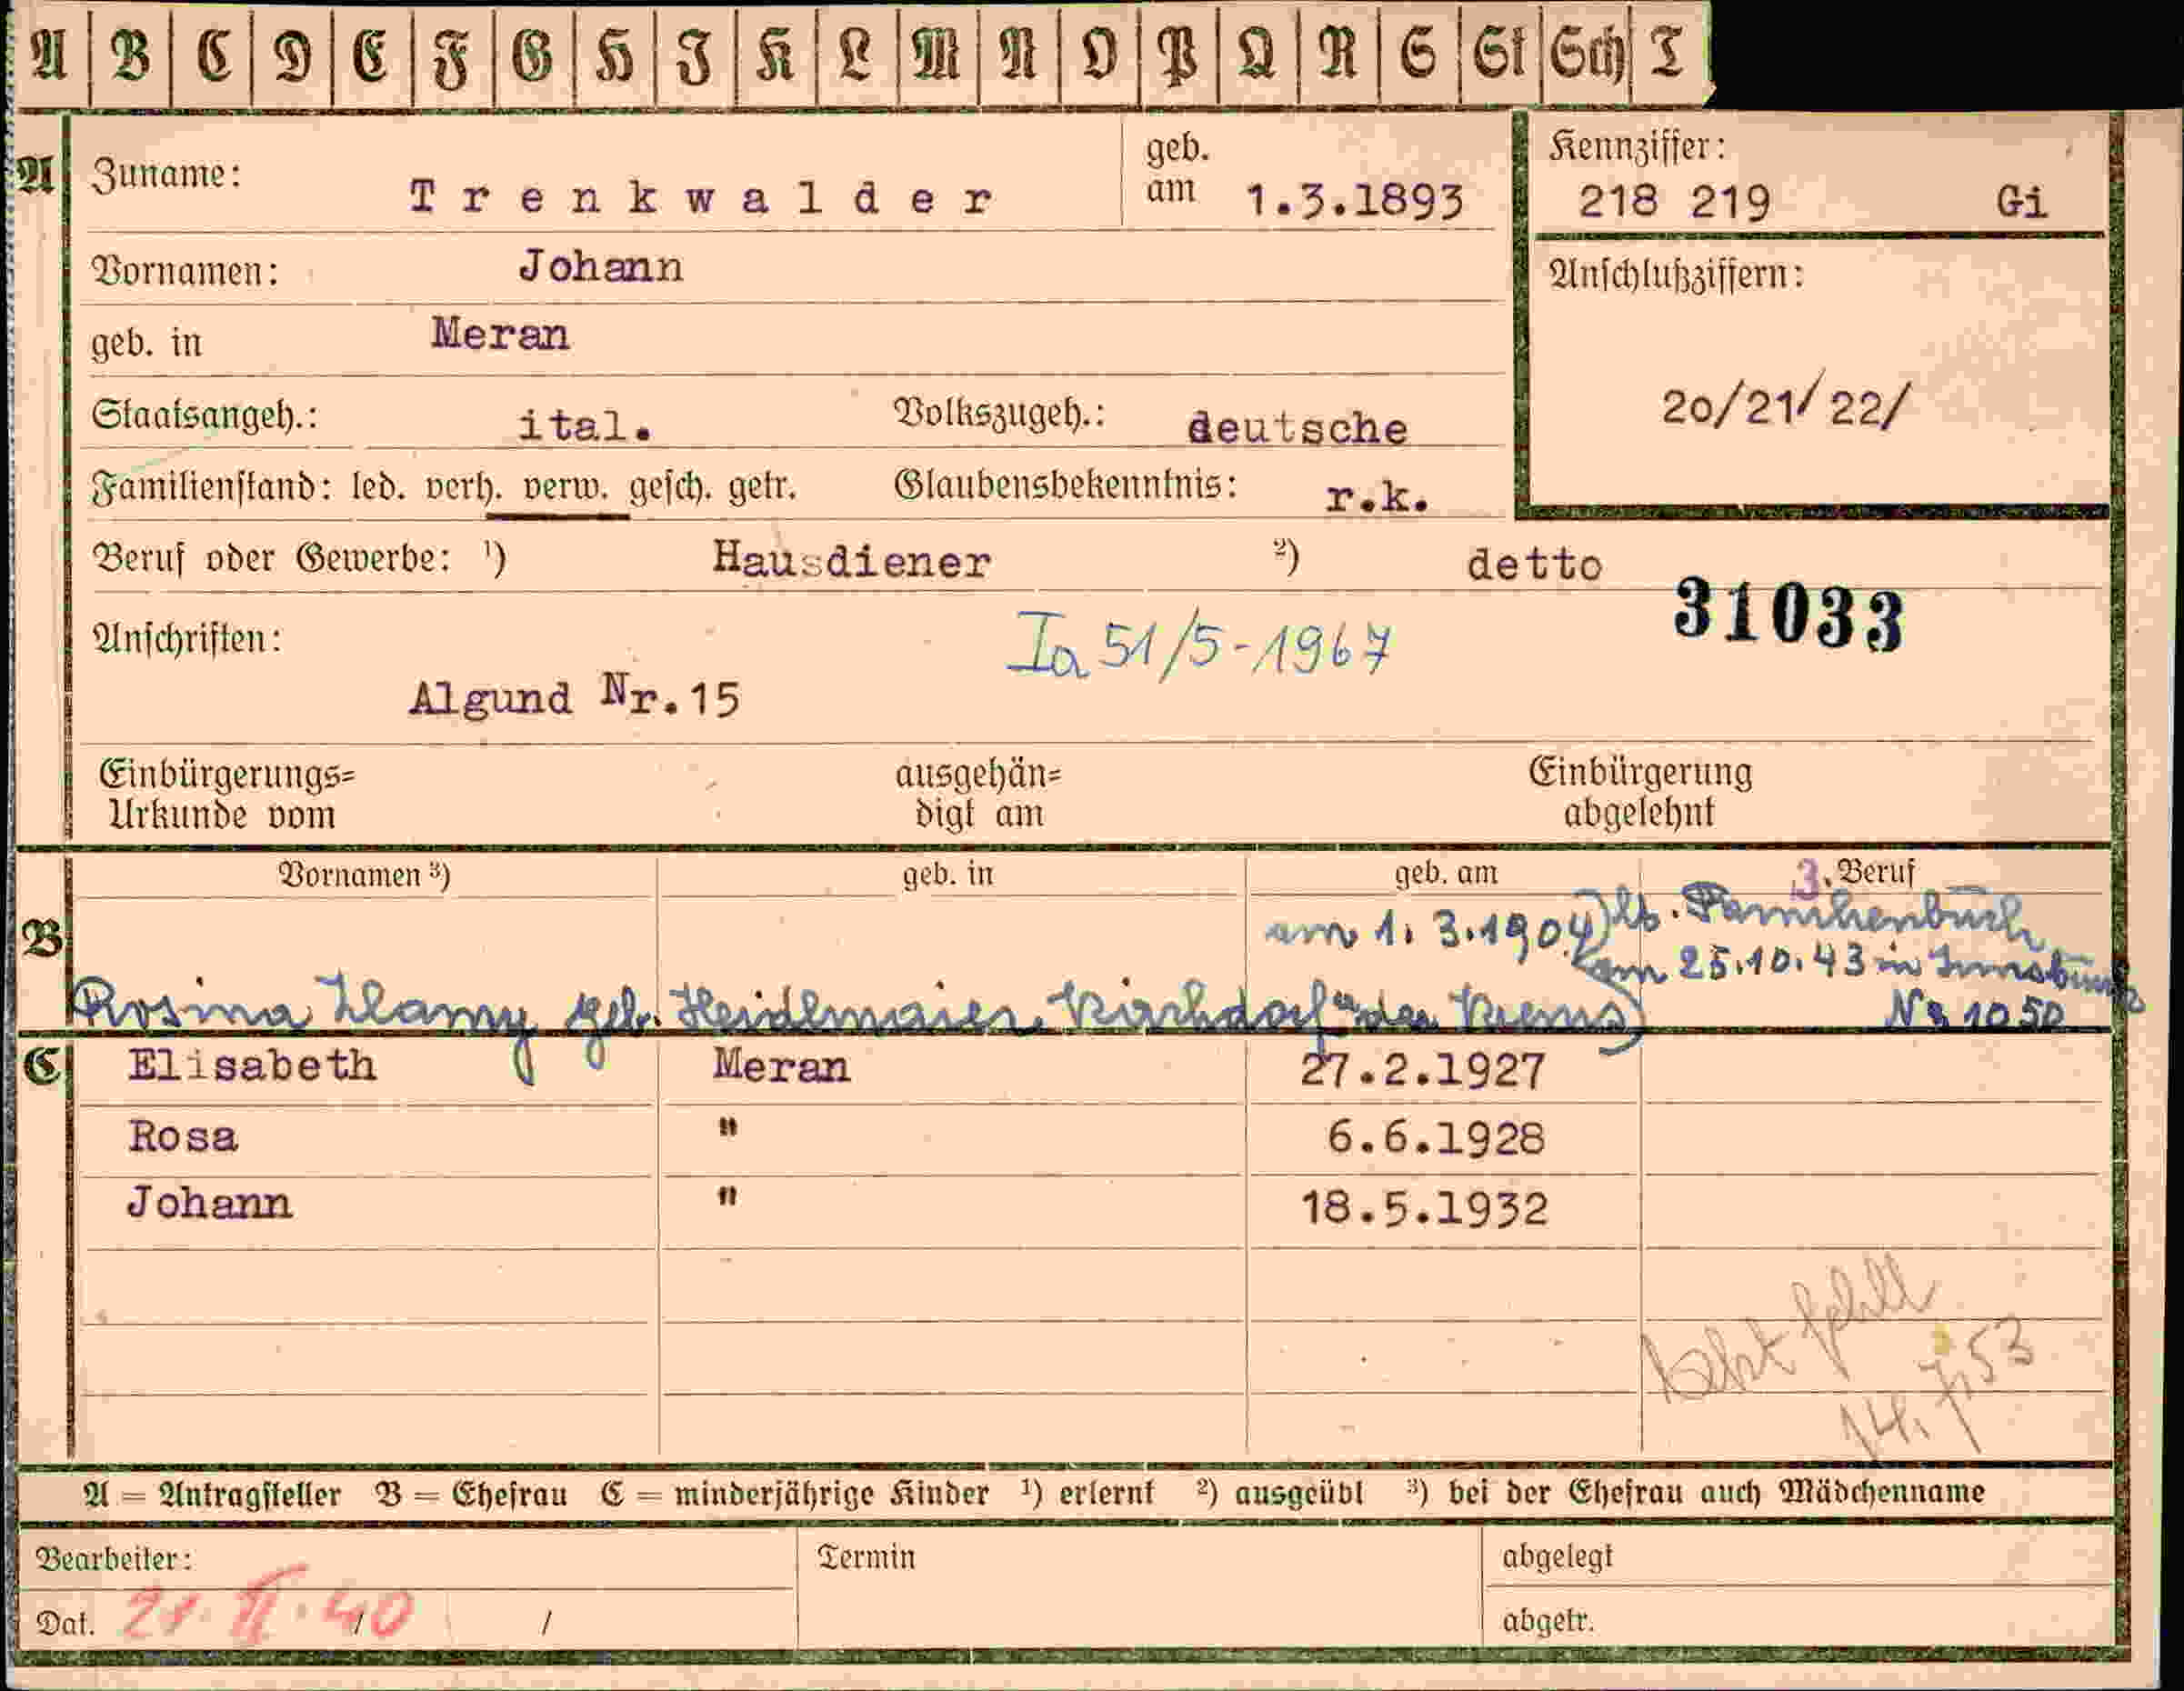 A B C D E F G H I K L M N O P Q R S St Sch T
A Zuname: Trenkwalder geb. am 1.3.1893
Kennziffer:
218 219 Gi
Vornamen: Johann
Anschlußziffern:
geb. in Meran
20/21/22/
Staatsangeh.: ital. Volkszugeh.: deutsche
Familienstand: led. verh. verw. gesch. getr. Glaubensbekenntnis: r.k.
Beruf oder Gewerbe: ¹) Hausdiener ²) detto
31033
Anschriften: Ia 51/5-1967
Algund Nr.15
Einbürgerungs= ausgehän= Einbürgerung
Urkunde vom digt am abgelehnt
Vornamen ³) geb. in geb. am 3. Beruf
B
am 1. 3. 1904) lt. Familienbuch
am 25.10.43 in Innsbruck
Rosina geb. Heidlmaier, Kirchdorf a. der Krems) Nr 1050
C Elisabeth Meran 27.2.1927
Rosa " 6.6.1928
Johann " 18.5.1932
Akt fehlt
14.7.53
A = Antragsteller B = Ehefrau C = minderjährige Kinder ¹) erlernt ²) ausgeübt ³) bei der Ehefrau auch Mädchenname
Bearbeiter: Termin abgelegt
Dat. 21. II. 40 / / abgetr.